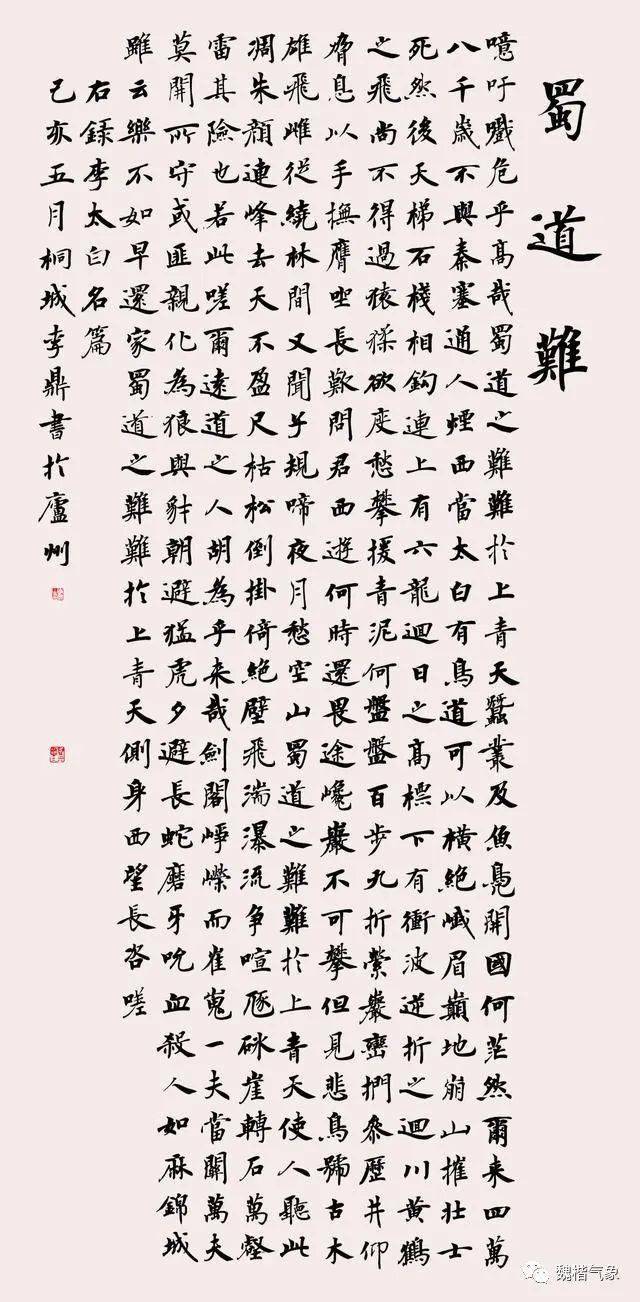 蜀道難
噫吁嚱危乎高哉蜀道之難難於上青天蠶叢及魚鳧開國何茫然爾来四萬
八千歲不與秦塞通人煙西當太白有鳥道可以橫絕峨眉巔地崩山摧壯士
死然後天梯石棧相鈎連上有六龍迴日之高標下有衝波逆折之迴川黃鶴
之飛尚不得過猿猱欲度愁攀援青泥何盤盤百步九折縈巖巒捫參歷井仰
脅息以手撫膺坐長歎問君西遊何時還畏途巉巖不可攀但見悲鳥號古木
雄飛雌從繞林間又聞子規啼夜月愁空山蜀道之難難於上青天使人聽此
凋朱顏連峰去天不盈尺枯松倒掛倚絕壁飛湍瀑流爭喧豗砯崖轉石萬壑
雷其險也若此嗟爾遠道之人胡為乎来哉劍閣崢嶸而崔嵬一夫當關萬夫
莫開所守或匪親化為狼與豺朝避猛虎夕避長蛇磨牙吮血殺人如麻錦城
雖云樂不如早還家蜀道之難難於上青天側身西望長咨嗟
右錄李太白名篇
己亥五月桐城李鼎書於廬州
魏楷气象